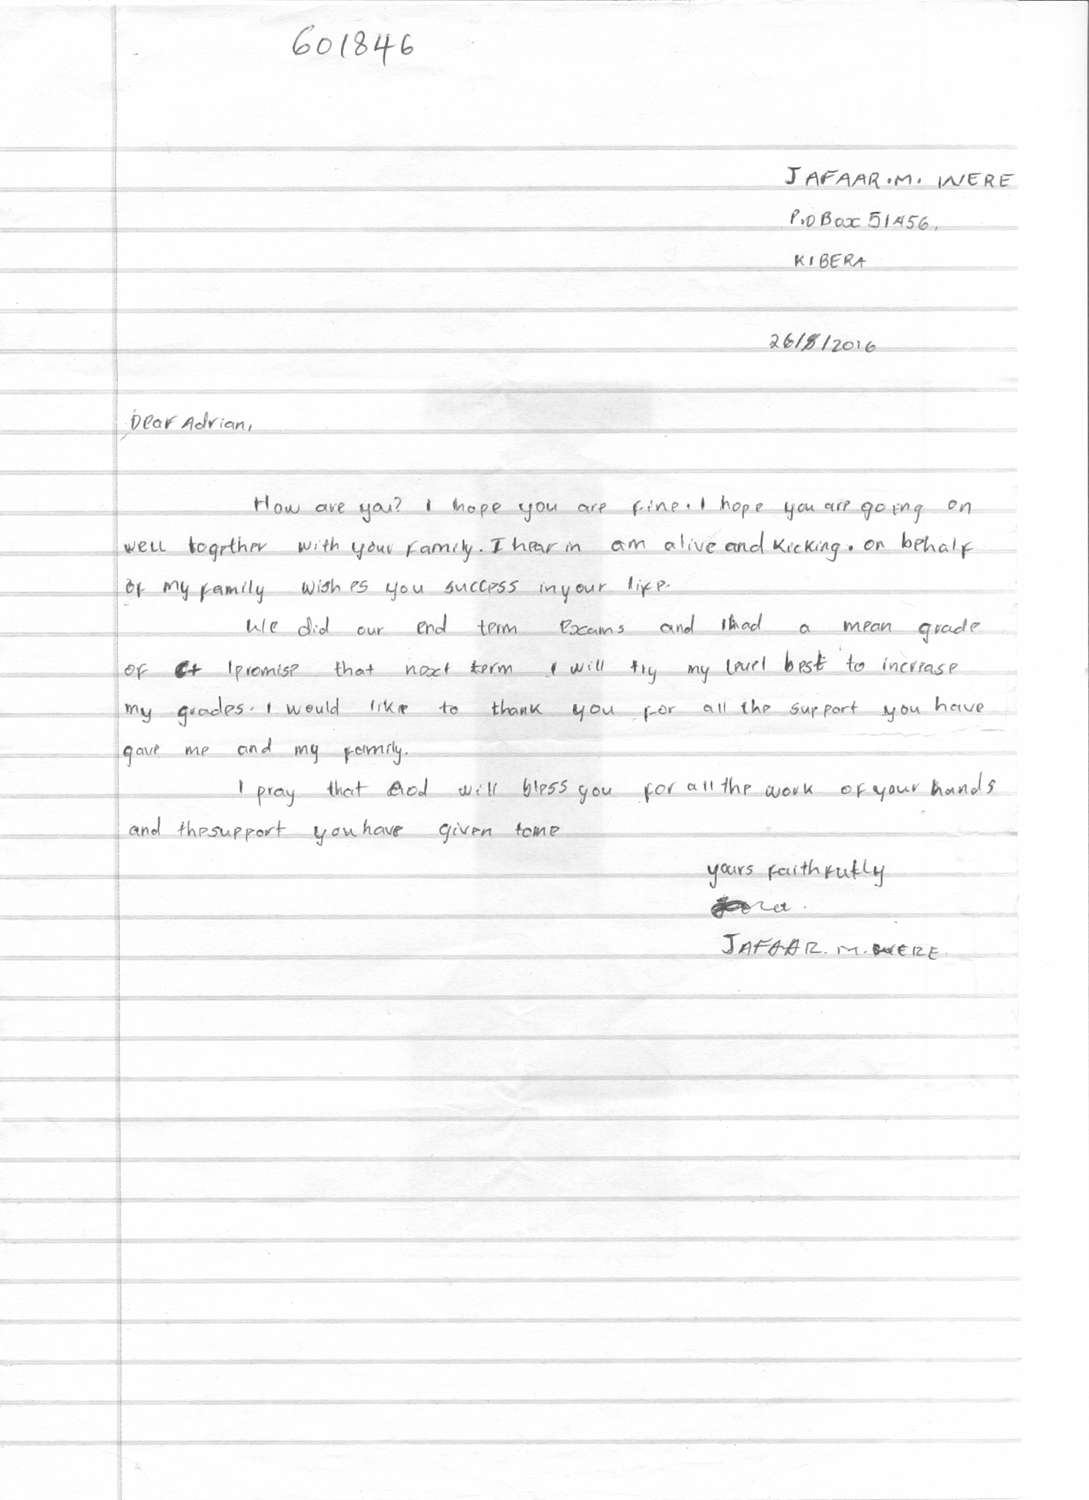 601846
JAFAAR.M. WERE
P.O Box 51456.
KIBERA
26/8/2016
Dear Adrian,
How are you? I hope you are fine. I hope you are going on
well together with your family. I hear in am alive and kicking. on behalf
of my family wishes you success in your life.
We did our end term exams and I had a mean grade
of C+ I promise that next term I will try my level best to increase
my grades. I would like to thank you for all the support you have
gave me and my family.
I pray that God will bless you for all the work of your hands
and the support you have given to me
yours faithfully
JAFAAR. M. WERE.